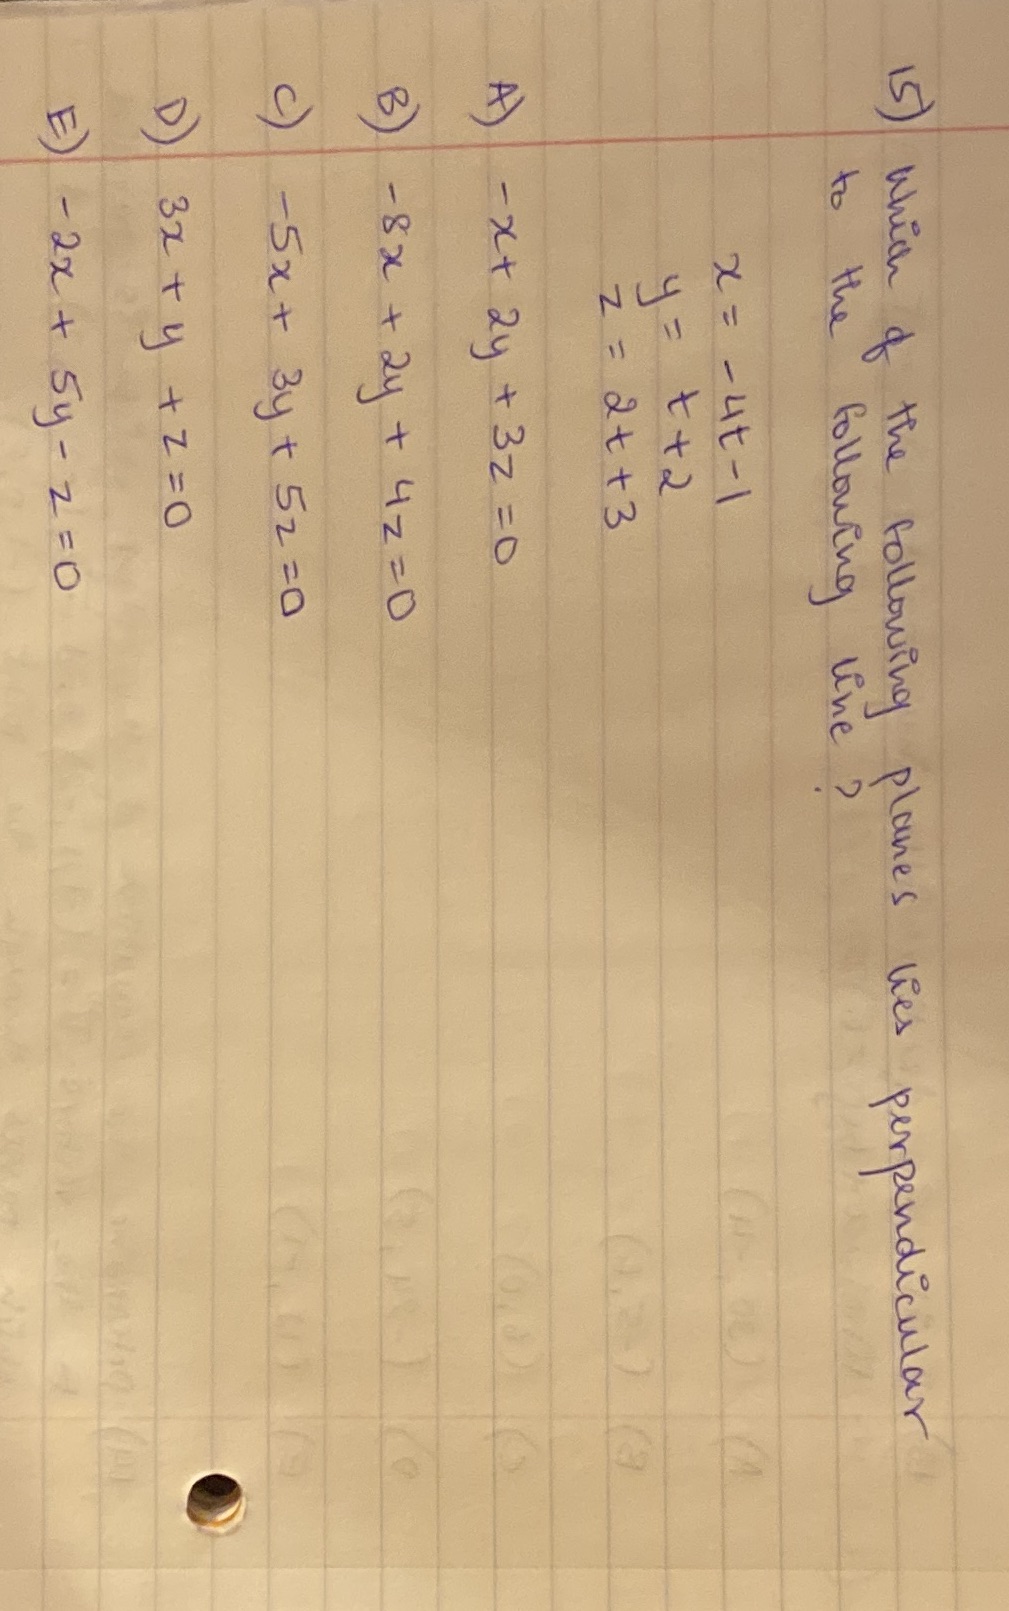 15) Which of the following planes lies perpendicular
to the following line?
x = -4t-1
y = t+2
z = 2t+3
A) -x+ 2y +3z =0
B) -8x + 2y + 4z=0
C) -5x+ 3y+ 5z=0
D) 3x + y +z=0
E) -2x+ 5y-z=0